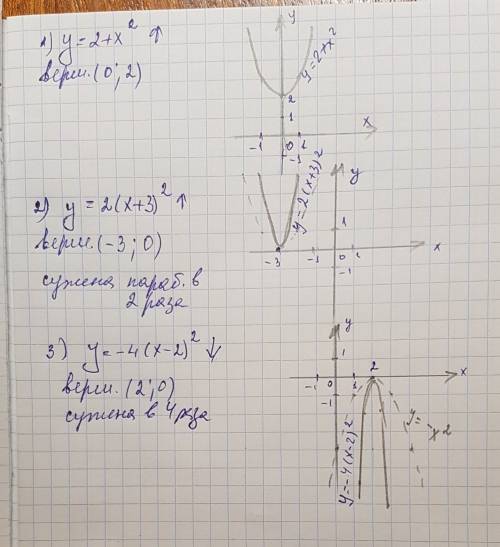 1) y = 2+x² ↑
верш. (0; 2)
y
y=2+x²
2
1
x
-1
0
1
-1
2) y = 2(x+3)² ↑
верш. (-3; 0)
сужена параб. в
2 раза
y
y=2(x+3)²
1
x
-3
-1
0
1
-1
3) y = -4(x-2)² ↓
верш. (2; 0)
сужена в 4 раза
y
1
2
x
-1
0
1
-1
y=-4(x-2)²